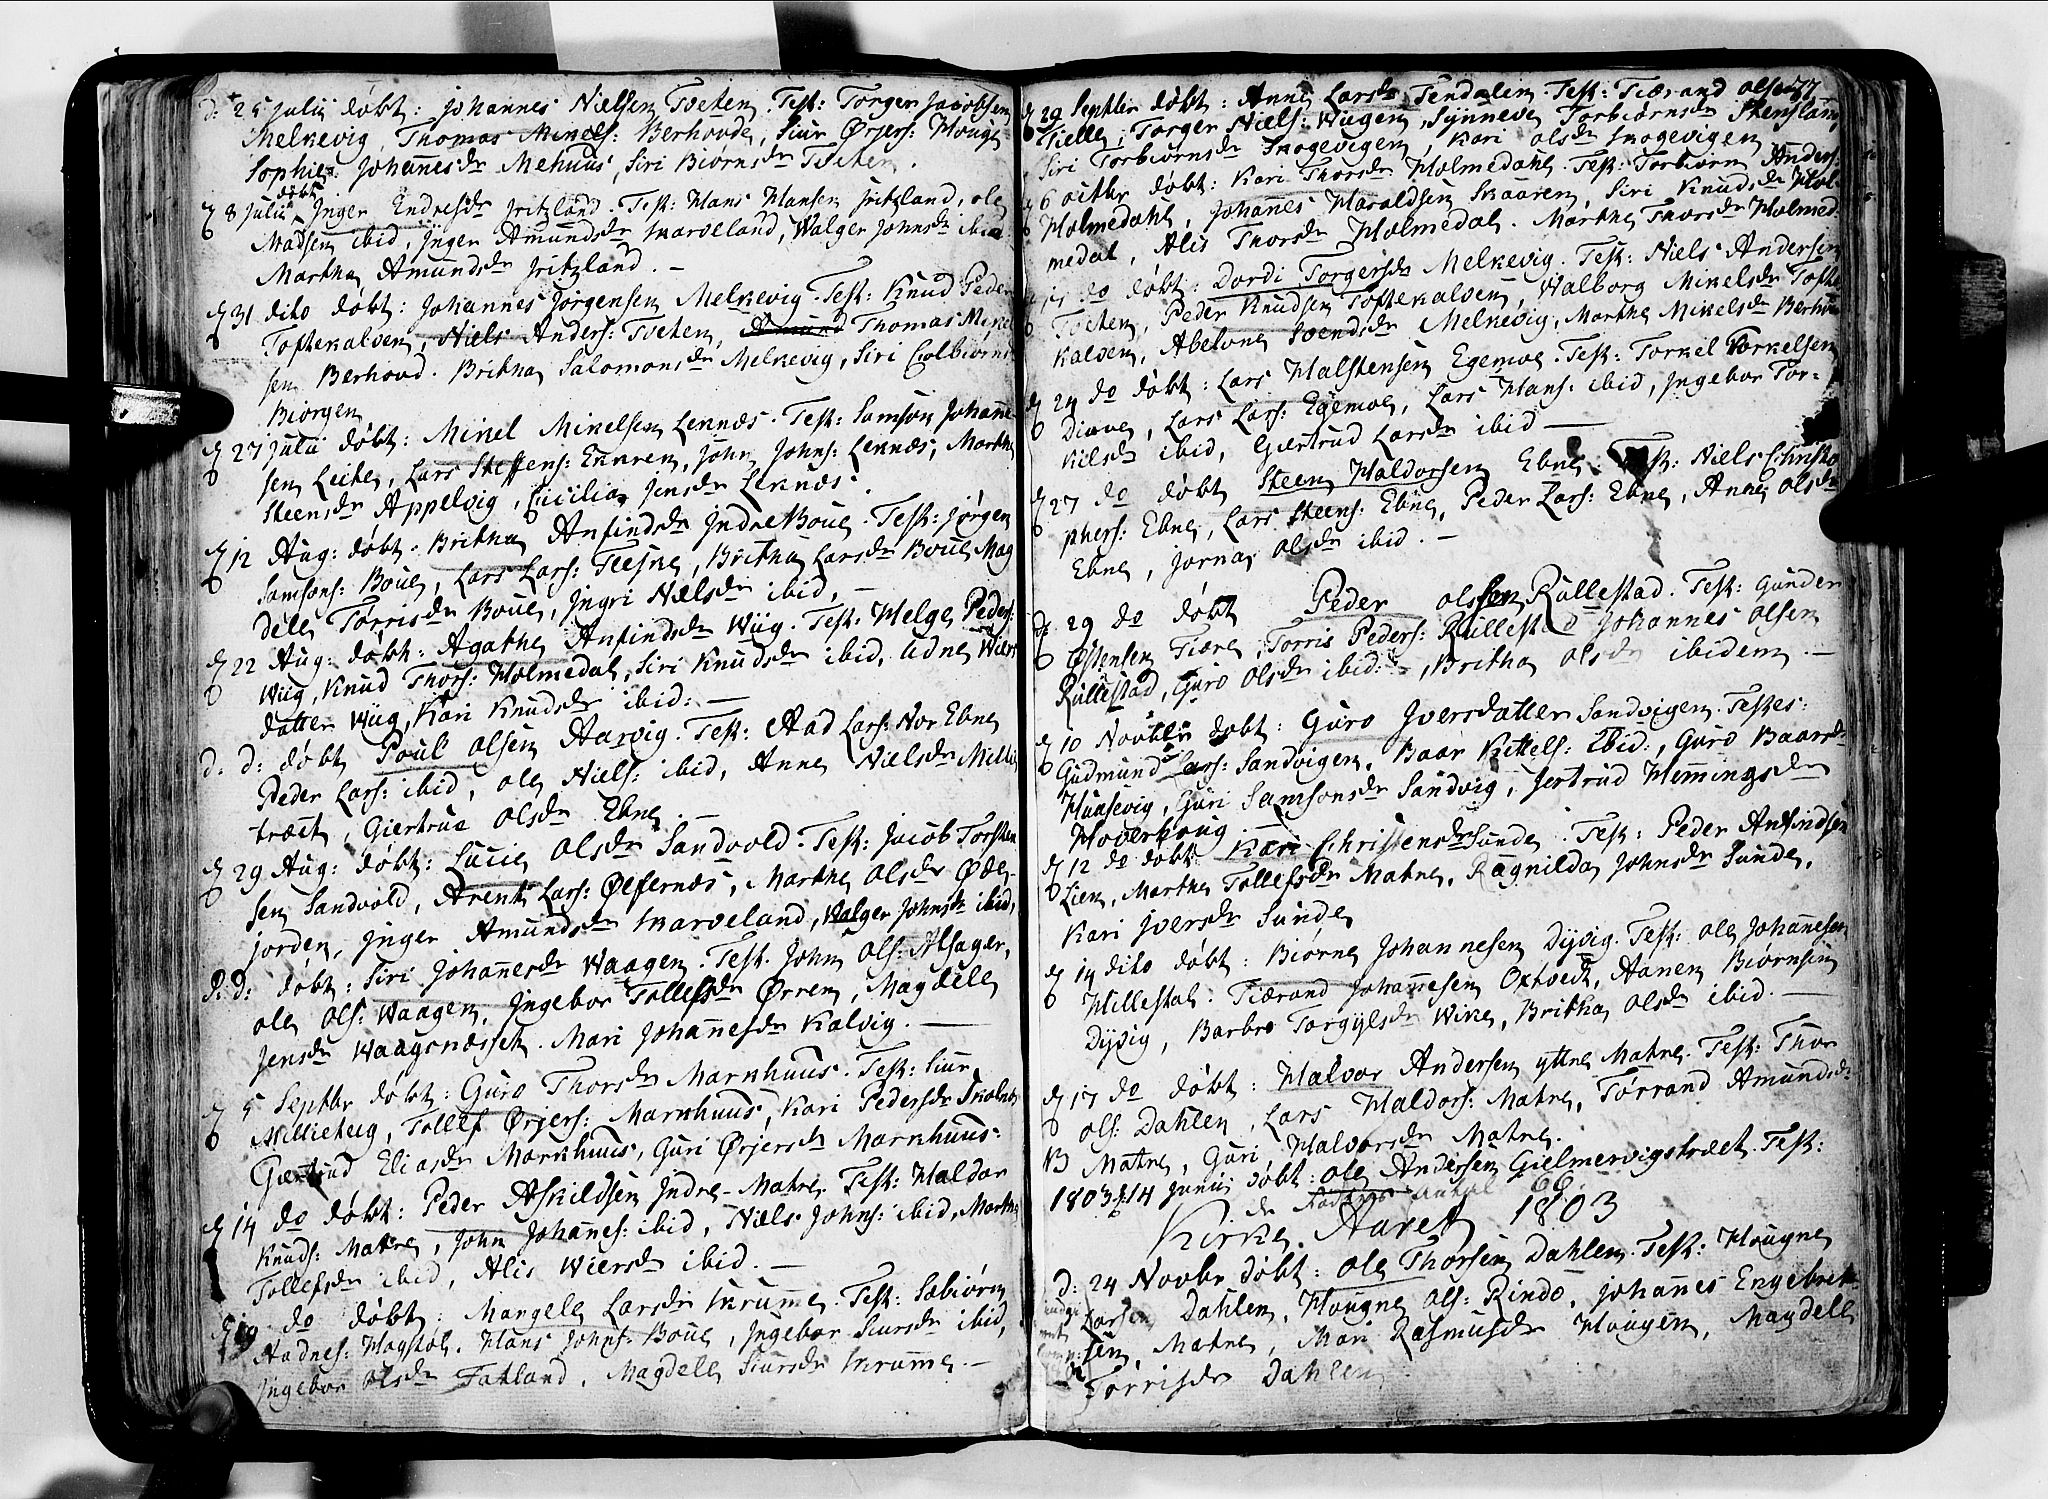 d: 25 julii døbt: Johannes Nielsen Tveten. Test: Torger Jacobsen
Melkevig, Thomas Mikels: Berhovde, Siur Ørjers: Houge
Sophie Johannesdr Mehuus, Siri Biørnsdr Tveten.
døbt
d 8 julii Inger Endresdr Fritzland. Test: Hans Hansen Fritzland, ole
Madsen ibid, Inger Amundsdr Skarveland, Walger Johnsdr ibid
Martha Amundsdr Fritzland. —
d 31 dito døbt: Johannes Jørgensen Melkevig. Test: Knud Peder
Toftekalven, Niels Anders: Tveten, Amund Thomas Mikel
sen Berhovd. Britha Salomonsdr Melkevig, Siri Colbiørns
Biorgen
d 27 julii døbt: Mikel Mikelsen Leknæs. Test: Samson Johanne
sen Leite, Lars Steffens: Enkren, John Johns: Leknæs, Martha
Steensdr Appelvig, Cicilia Jensdr Leknæs.
d 12 Aug: døbt: Britha Anfindsdr Indre Boue. Test: Jørgen
Samsons: Boue, Lars Lars: Teisne, Britha Larsdr Boue Mag
dele Tørrisdr Boue, Ingri Nielsdr ibid. —
d 22 Aug: døbt: Agathe Anfindsdr Wiig. Test: Helge Peders:
Wiig, Knud Thors: Holmedal, Siri Knudsdr ibid, Adne Wiers
datter Wiig, Kari Knudsdr ibid: —
d: d: døbt Poul Olsen Aarvig. Test: Aad Lars: Nor Ebne
Peder Lars: ibid, ole Niels: ibid, Anne Nielsdr Millie
træet, Giertrue Olsdr Ebne. —
d 29 Aug: døbt: Lucie Olsdr Sandvold. Test: Jacob Torsten
sen Sandvold, Arent Lars: Ølfernæs, Marthe Olsdr Øde-
jorden, Inger Amundsdr Skarveland, Walger Johnsdr ibid,
d: d: døbt: Siri Johannesdr Waagen. Test. John Ols: Alsager,
ole Ols: Waagen, Ingebor Tollefsdr Ørren, Magdele
Jensdr Waagsnæsset. Mari Johannesdr Kalvig. —
d 5 Septbr døbt: Guro Thorsdr Markhuus. Test: Siur
Milliehug, Tollef Ørjers: Markhuus, Kari Pedersdr Skolnæs
Gertrud Eliasdr Markhuus, Guri Ørjersdr Markhuus:
d 14 do døbt: Peder Askildsen Indre-Matre. Test: Haldor
Knuds: Matre, John Johanes: ibid, Niels Johns: ibid, Martha
Tollefsdr ibid, Alis Wiersdr ibid. —
d 19 do døbt: Margele Larsdr Skrumme. Test: Sæbiørn
Aadnes: Hagstøl. Hans Johns: Boue, Ingebor Siursdr ibid,
Ingebor Olsdr Fatland, Magdele Siursdr Skrumme. —
77
d 29 Septbr døbt: Anna Larsdr Tendalen Test: Tiærand Olsen
Tielle, Torger Niels: Wiigen, Synneve Torbiørnsdr Stensland,
Siri Torbiørnsdr Skogevigen, Kari Olsdr Skogevigen
d 6 octbr døbt: Kari Thorsdr Holmedahl. Test: Torbiørn Anders:
Holmedahl, Johannes Haraldsen Skaaren, Siri Knudsdr Hol-
medal, Alis Thorsdr Holmedal. Marthe Thorsdr Holmed:
d 17 do døbt: Dordi Torgersdr Melkevig. Test: Niels Andersen
Tveten, Peder Knudsen Toftekalven, Walborg Mikelsdr Tofte
Kalven, Abelone Svendsdr Melkevig, Marthe Mikelsdr Berhov
d 24 do døbt: Lars Halstensen Egemoe. Test: Torkel Torkelsen
Diøve, Lars Lars: Egemoe, Lars Hans: ibid, Ingebor Tor-
kilsdr ibid, Giertrud Larsdr ibid —
d 27 do døbt Steen Haldorsen Ebne. Test: Niels Christo
phers: Ebne, Lars Steens: Ebne, Peder Lars: Ebne, Anne Olsdr
Ebne, Jorna Olsdr ibid. —
d: 29 do døbt Peder Olssen Rullestad. Test: Gunder
Østensen Tiære, Torris Peders: Rullestad Johannes Olsen
Rullestad, Guro Olsdr ibid: —, Britha Olsdr ibidem. —
d 10 Novbr døbt: Guro Iversdatter Sandvigen. Testes:
Gudmund Lars: Sandvigen, Baar Kittels: Ibid:, Guro Baarsdr
Haasevig, Guri Samsonsdr Sandvig, Jertrud Hemmingsdr
Hoverhoug
d 12 do døbt: Kari Christensdr Sunde. Test: Peder Anfindsen
Lien, Marthe Tollefsdr Matre, Ragnilda Johnsdr Sunde,
Kari Iversdr Sunde
d 14 dito døbt: Biørne Johannesen Dyvig. Test: ole Johannesen
Millestøl: Tiærand Johannesen Oxtvedt, Aanen Biørnsen
Dyvig, Barbro Torgylsdr Wike, Britha Olsdr ibid. —
d 17 do døbt: Halvor Andersen yttre Matre. Test: Thor
Ols: Dahlen, Lars Haldors: Matre, Tørrand Amundsdr
NB Matre, Guri Halvorsdr Matre.
1803 d: 14 Junii døbt: ole Andersen Gielmervigstræet. Test:
de Fødtes antal 66.
Kirke Aaret 1803
d: 24 Novbr døbt: Ole Thorsen Dahlen. Test: Hougne
Larsen Dahlen, Hougne Ols: Rindo, Johannes Engebret
sen, Matre, Mari Rasmusdr Hougen, Magdele
Torrisdr Dahlen